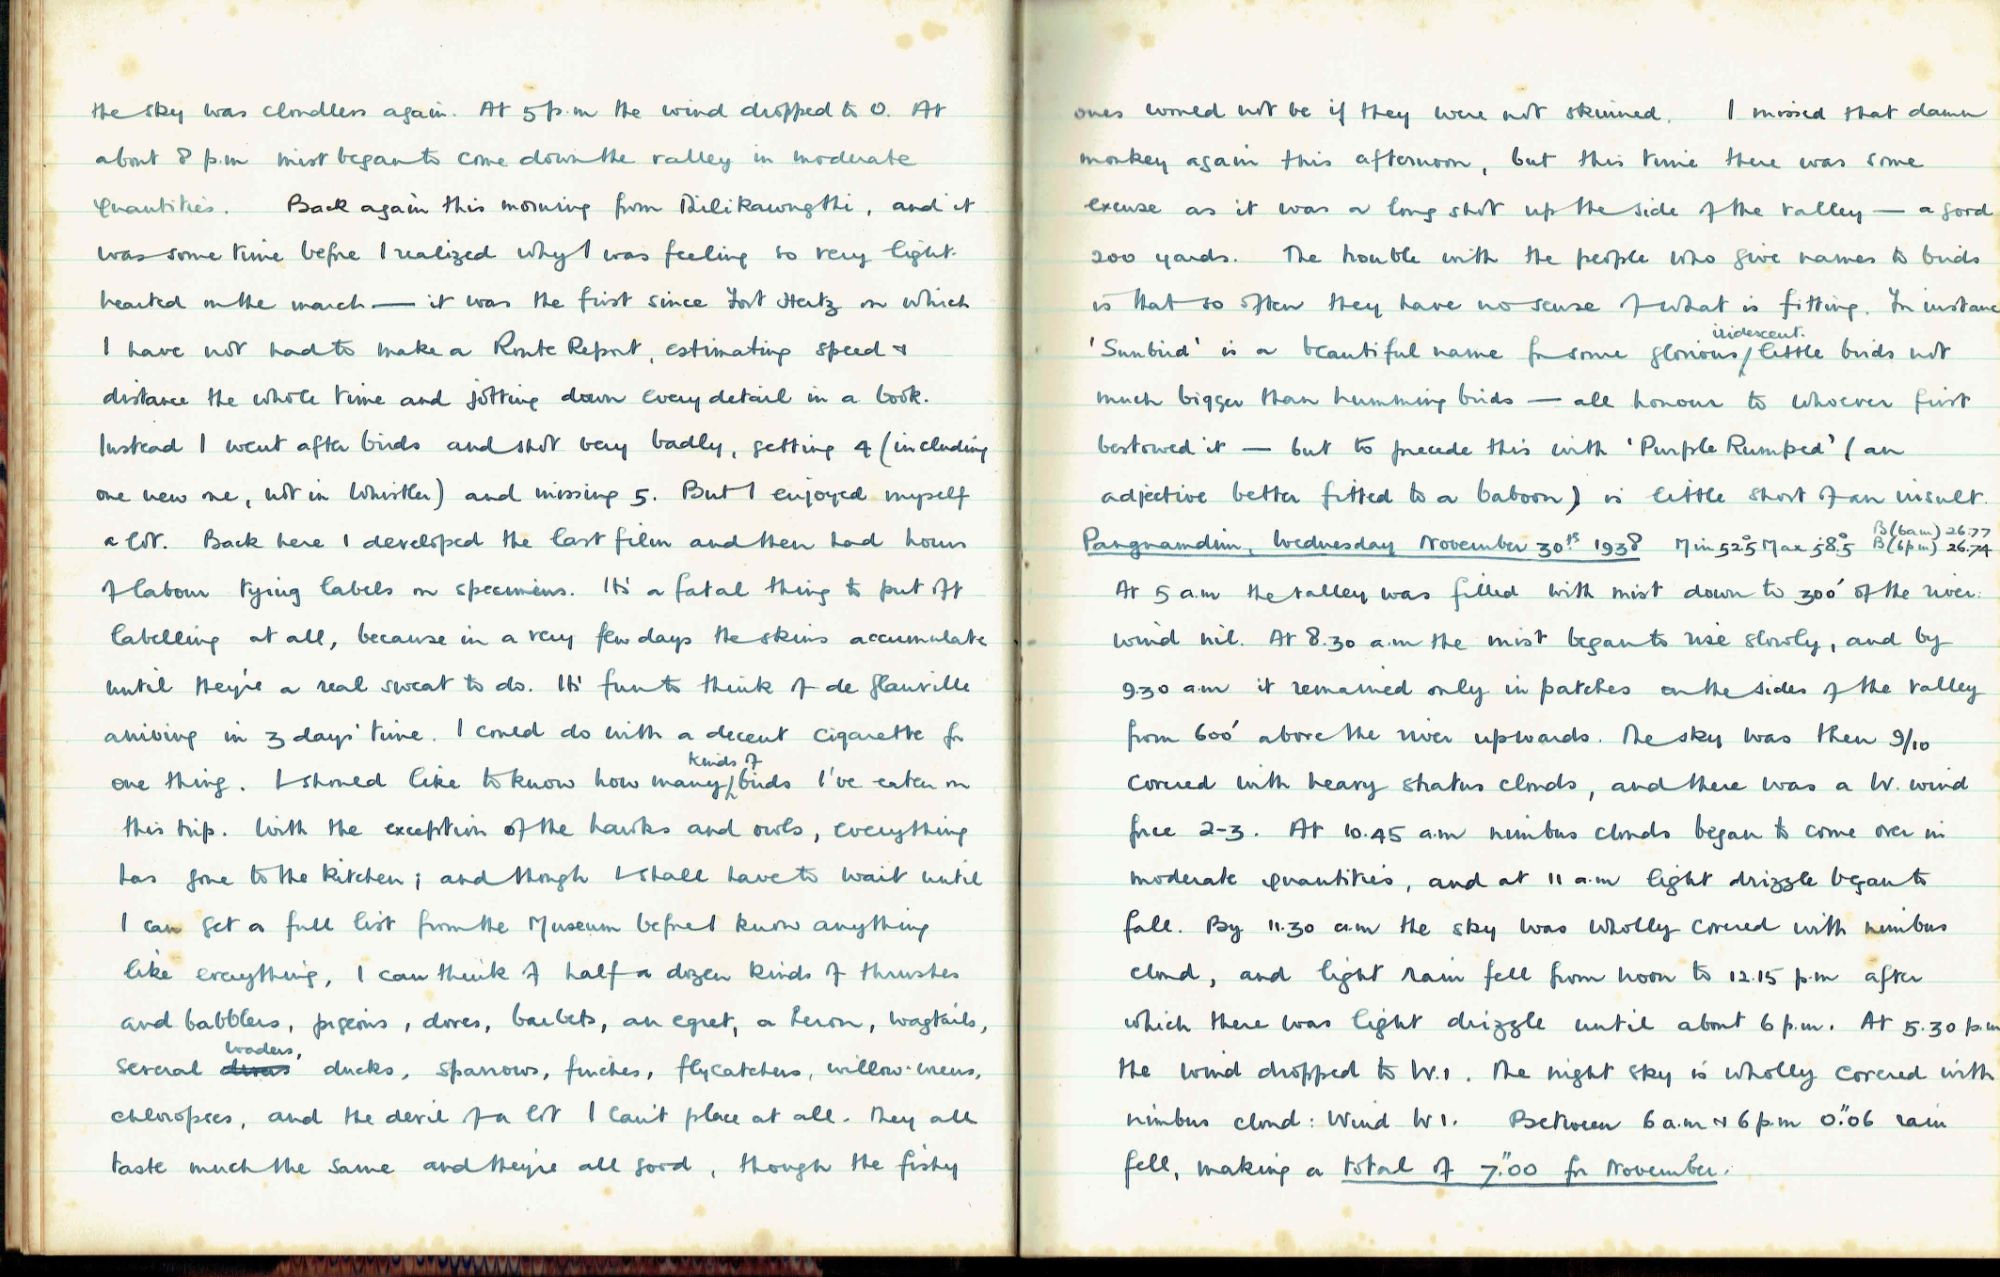 the sky was cloudless again. At 5 p.m the wind dropped to 0. At
about 8 p.m mist began to come down the valley in moderate
quantities. Back again this morning from Tilikawngthi, and it
was some time before I realized why I was feeling so very light-
hearted on the march — it was the first since Fort Hertz on which
I have not had to make a Route Report, estimating speed &
distance the whole time and jotting down every detail in a book.
Instead I went after birds and shot very badly, getting 4 (including
one new one, not in Whistler) and missing 5. But I enjoyed myself
a lot. Back here I developed the last film and then had hours
of labour tying labels on specimens. It's a fatal thing to put off
labelling at all, because in a very few days the skins accumulate
until they're a real sweat to do. It's fun to think of de Glanville
arriving in 3 days' time. I could do with a decent cigarette for
one thing. I should like to know how many kinds of birds I've eaten on
this trip. With the exception of the hawks and owls, everything
has gone to the kitchen; and though I shall have to wait until
I can get a full list from the Museum before I know anything
like everything, I can think of half a dozen kinds of thrushes
and babblers, pigeons, doves, barbets, an egret, a heron, wagtails,
several waders, ducks, sparrows, finches, flycatchers, willow-wrens,
chloropses, and the devil of a lot I can't place at all. They all
taste much the same and they're all good, though the fishy
ones would not be if they were not skinned. I missed that damn
monkey again this afternoon, but this time there was some
excuse as it was a long shot up the side of the valley — a good
200 yards. The trouble with the people who give names to birds
is that so often they have no sense of what is fitting. For instance
'Sunbird' is a beautiful name for some glorious iridescent little birds not
much bigger than humming birds — all honour to whoever first
bestowed it — but to precede this with 'Purple Rumped' (an
adjective better fitted to a baboon) is little short of an insult.
Pangnamdim, Wednesday November 30th 1938 Min 52°5 Max 58°5 B(6am) 26.77 B(6pm) 26.74
At 5 a.m the valley was filled with mist down to 300' of the river.
Wind nil. At 8.30 a.m the mist began to rise slowly, and by
9.30 a.m it remained only in patches on the sides of the valley
from 600' above the river upwards. The sky was then 9/10
covered with heavy stratus clouds, and there was a W. wind
force 2-3. At 10.45 a.m nimbus clouds began to come over in
moderate quantities, and at 11 a.m light drizzle began to
fall. By 11.30 a.m the sky was wholly covered with nimbus
cloud, and light rain fell from noon to 12.15 p.m after
which there was light drizzle until about 6 p.m. At 5.30 p.m
the wind dropped to W.1. The night sky is wholly covered with
nimbus cloud: Wind W1. Between 6 a.m & 6 p.m 0."06 rain
fell, making a total of 7."00 for November.